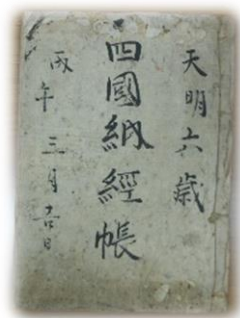 天明六歳
四國納經帳
丙午年三月吉日